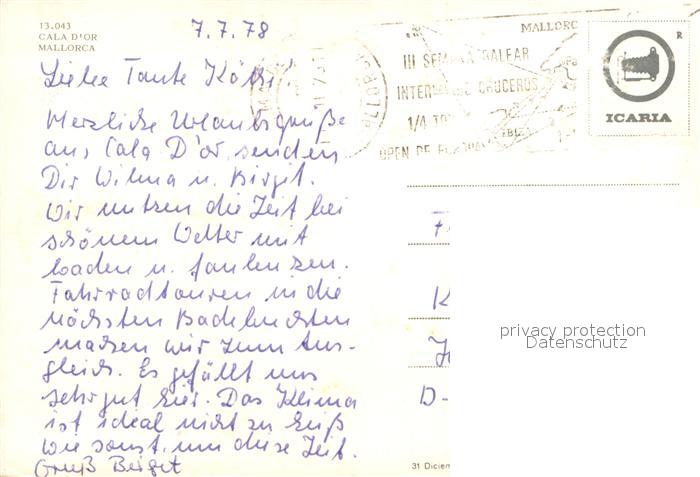 13.043
CALA D'OR
MALLORCA
7.7.78
Liebe Tante Käthi!
Herzliche Urlaubsgrüße
aus Cala D'or senden
Dir Wilma u. Birgit.
Wir nutzen die Zeit bei
schönem Wetter mit
baden u. faulenzen.
Fahrradtouren in die
nächsten Badebuchten
machen wir zum Aus-
gleich. Es gefällt uns
sehr gut hier. Das Klima
ist ideal nicht zu heiß
wie sonst um diese Zeit.
Gruß Birgit
MALLORC
III SEMANA BALEAR
INTERN CRUCEROS
1/4 TO
OPEN DE
R
ICARIA
F
K
D-
privacy protection
Datenschutz
31 Diciem